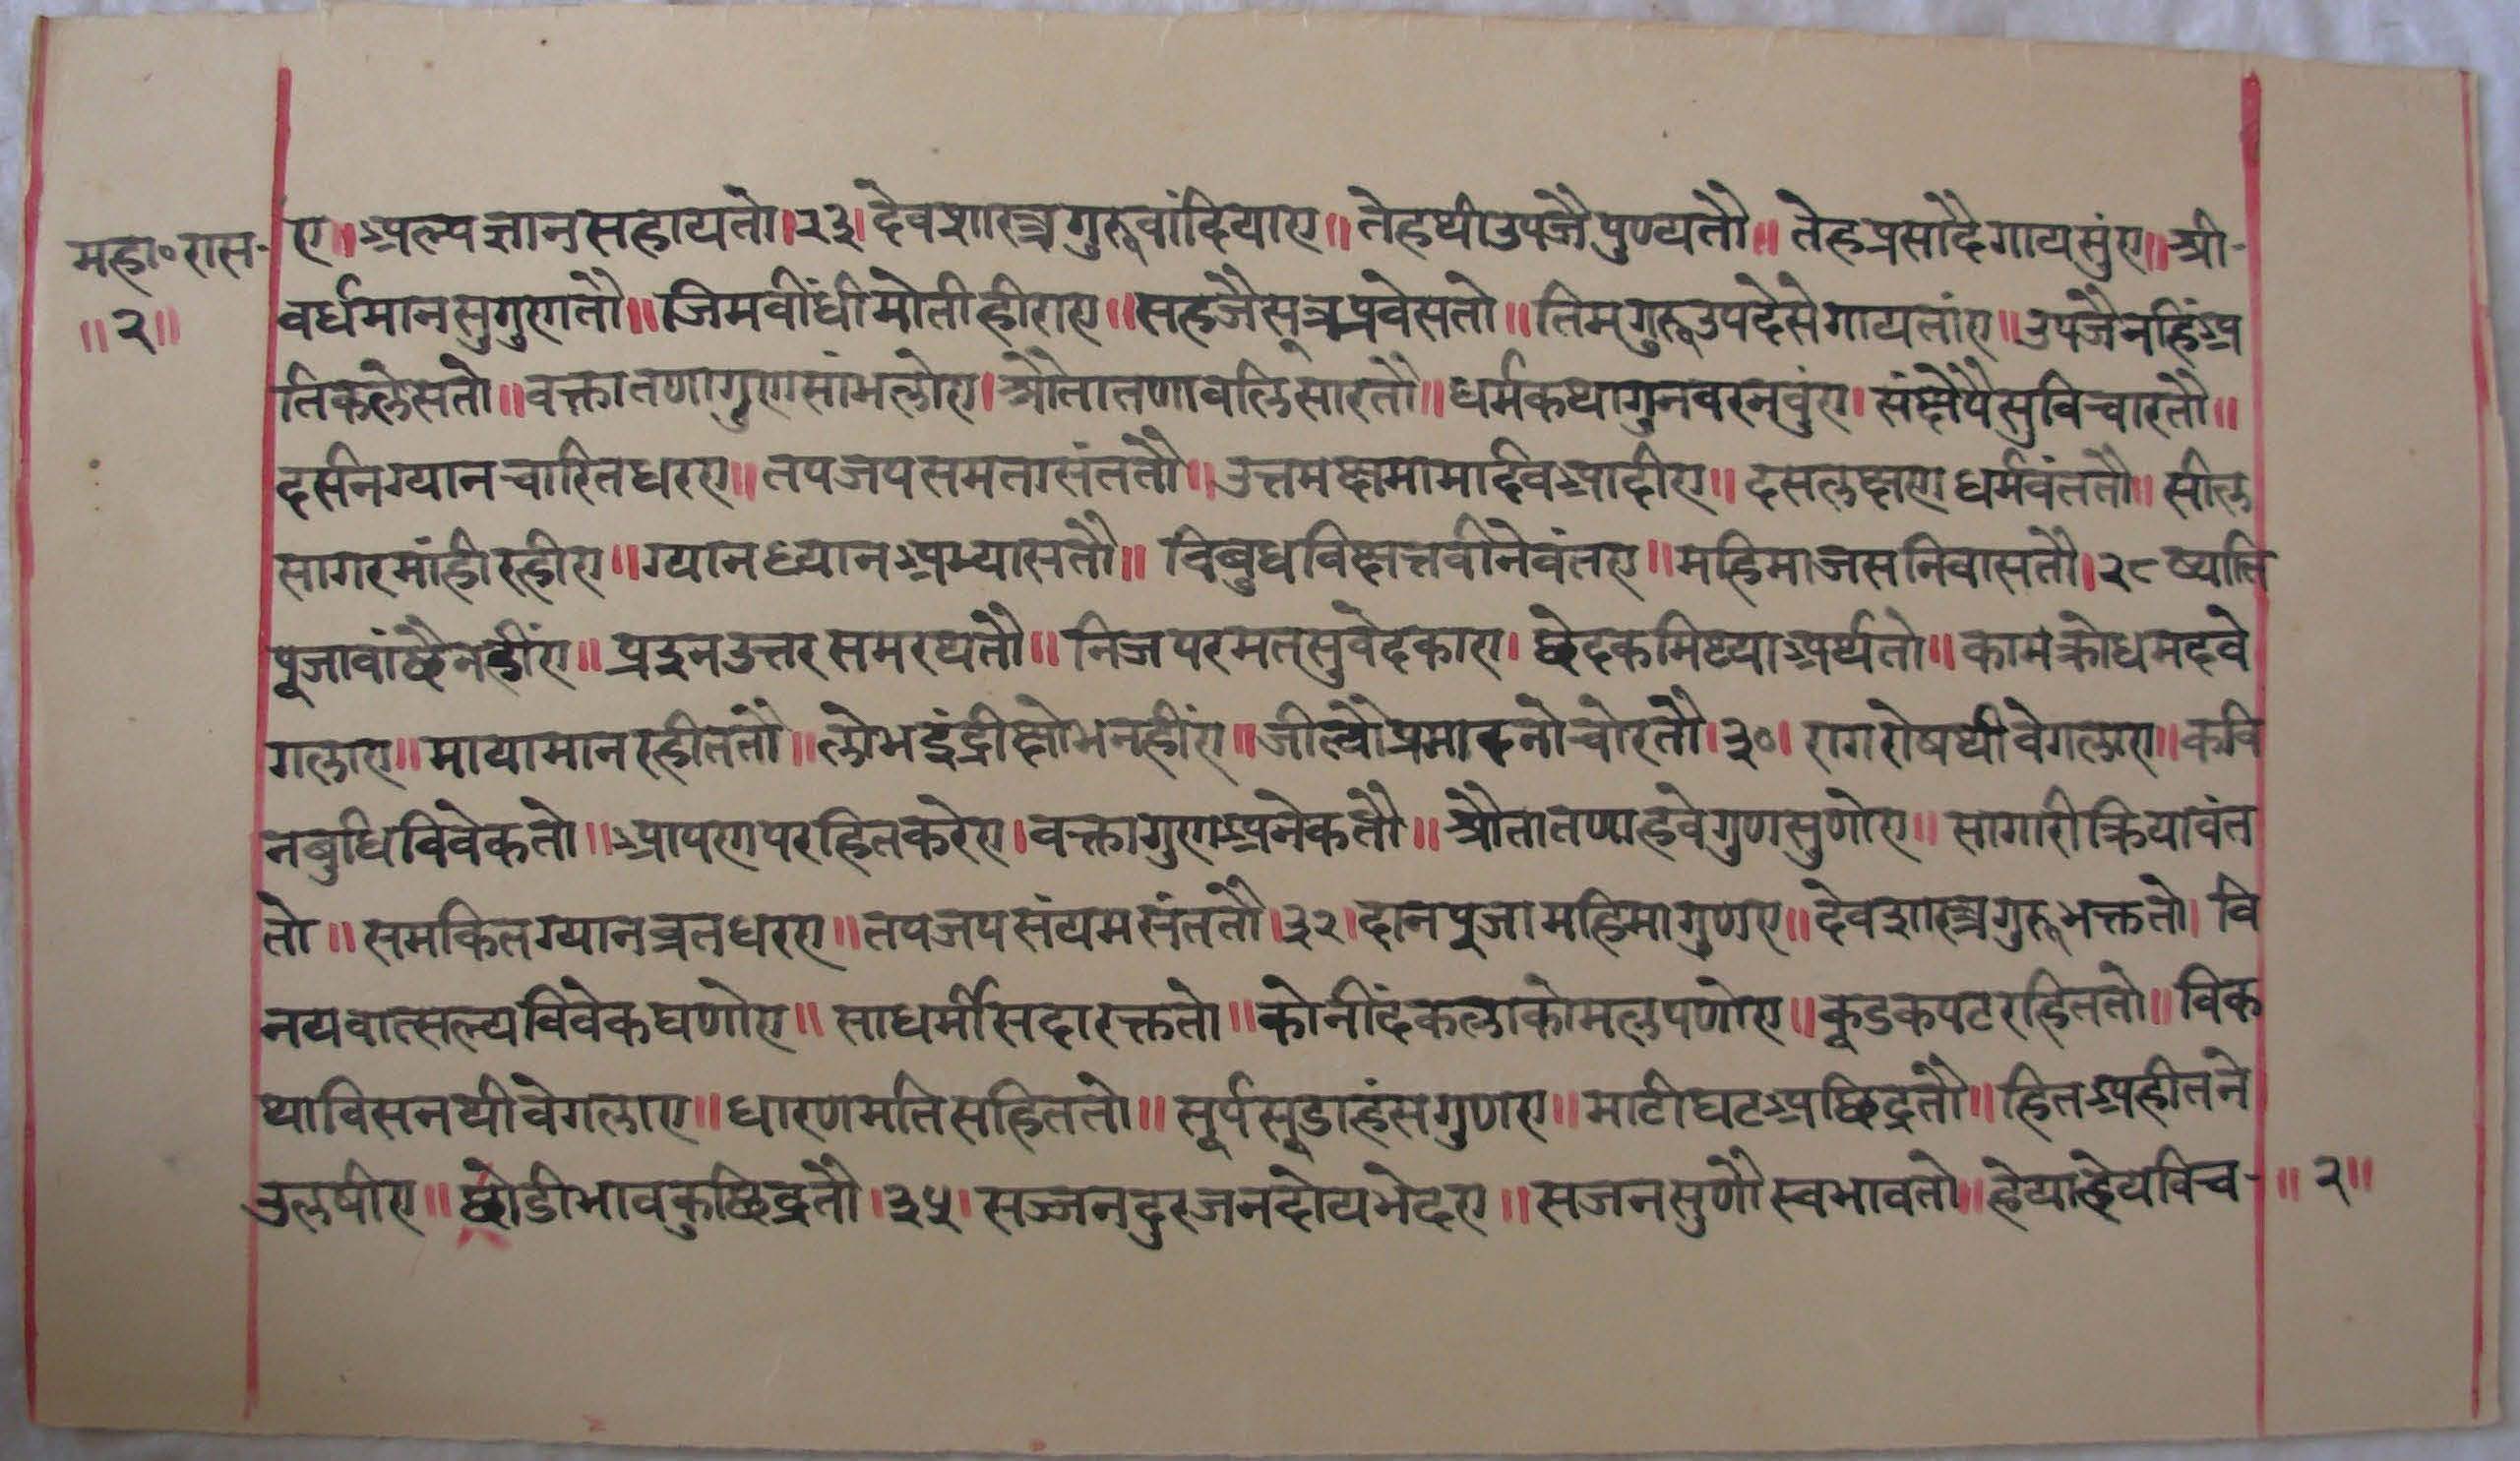 महा०रास-
॥२॥
ए॥अल्पज्ञानसहायतो।२३।देवशास्त्रगुरुवांदियाए॥तेहथीउपजैपुण्यतौ॥तेहप्रसादैगायसुंए॥श्री-
वर्धमानसुगुणतौ॥जिमवींधीमोतीहीराए॥सहजैसूत्रप्रवेसतो॥तिमगुरुउपदेसेगायतांए॥उपजैनहिंअ
तिकलेसतो॥वक्तातणागुणसांभलोए।श्रौतातणावलिसारतौ॥धर्मकथागुनवरनवुंए।संक्षेपैसुविचारतौ॥
दर्सनग्यानचारितधरए॥तपजपसमतासंततौ॥उत्तमक्षमामार्दवआदीए॥दसलक्षणधर्मवंततौ॥सील
सागरमांहीरहीए॥ग्यानध्यानअभ्यासतौ॥विबुधविक्षात्तवीनेवंतए॥महिमाजसनिवासतौ।२८ष्याति
पूजावांछैनहींए॥प्रइनउत्तरसमरथतौ॥निजपरमतसुवेदकाए।छेदकमिथ्याअर्थतो॥कामक्रोधमदवे
गलाए॥मायामानरहीततौ॥लोभइंद्रीक्षोभनहींए॥जीत्यौप्रमादनोचोरतौ।३०।रागरोषथीवेगलाए॥कवि
नबुधिविवेकतो॥आपणपरहितकरेए।वक्तागुणअनेकतौ॥श्रौतातणाहवेगुणसुणोए॥सागारीक्रियावंत
तो॥समकितग्यानव्रतधरए॥तपजपसंयमसंततौ।३२।दानपूजामहिमागुणए॥देवशास्त्रगुरुभक्ततो।वि
नयवात्सल्यविवेकघणोए॥साधर्मीसदारक्ततो॥कोनींदकलाकोमलपणोए॥कूडकपटरहिततो॥विक
थाविसनथीवेगलाए॥धारणमतिसहिततो॥सूर्पसूडाहंसगुणए॥माटीघटअछिद्रतौ॥हितअहीतने
उलषीए॥छोडीभावकुछिद्रतौ।३५।सज्जनदुरजनदोयभेदए॥सजनसुणौस्वभावतो॥हेयाहेयविच-॥२॥